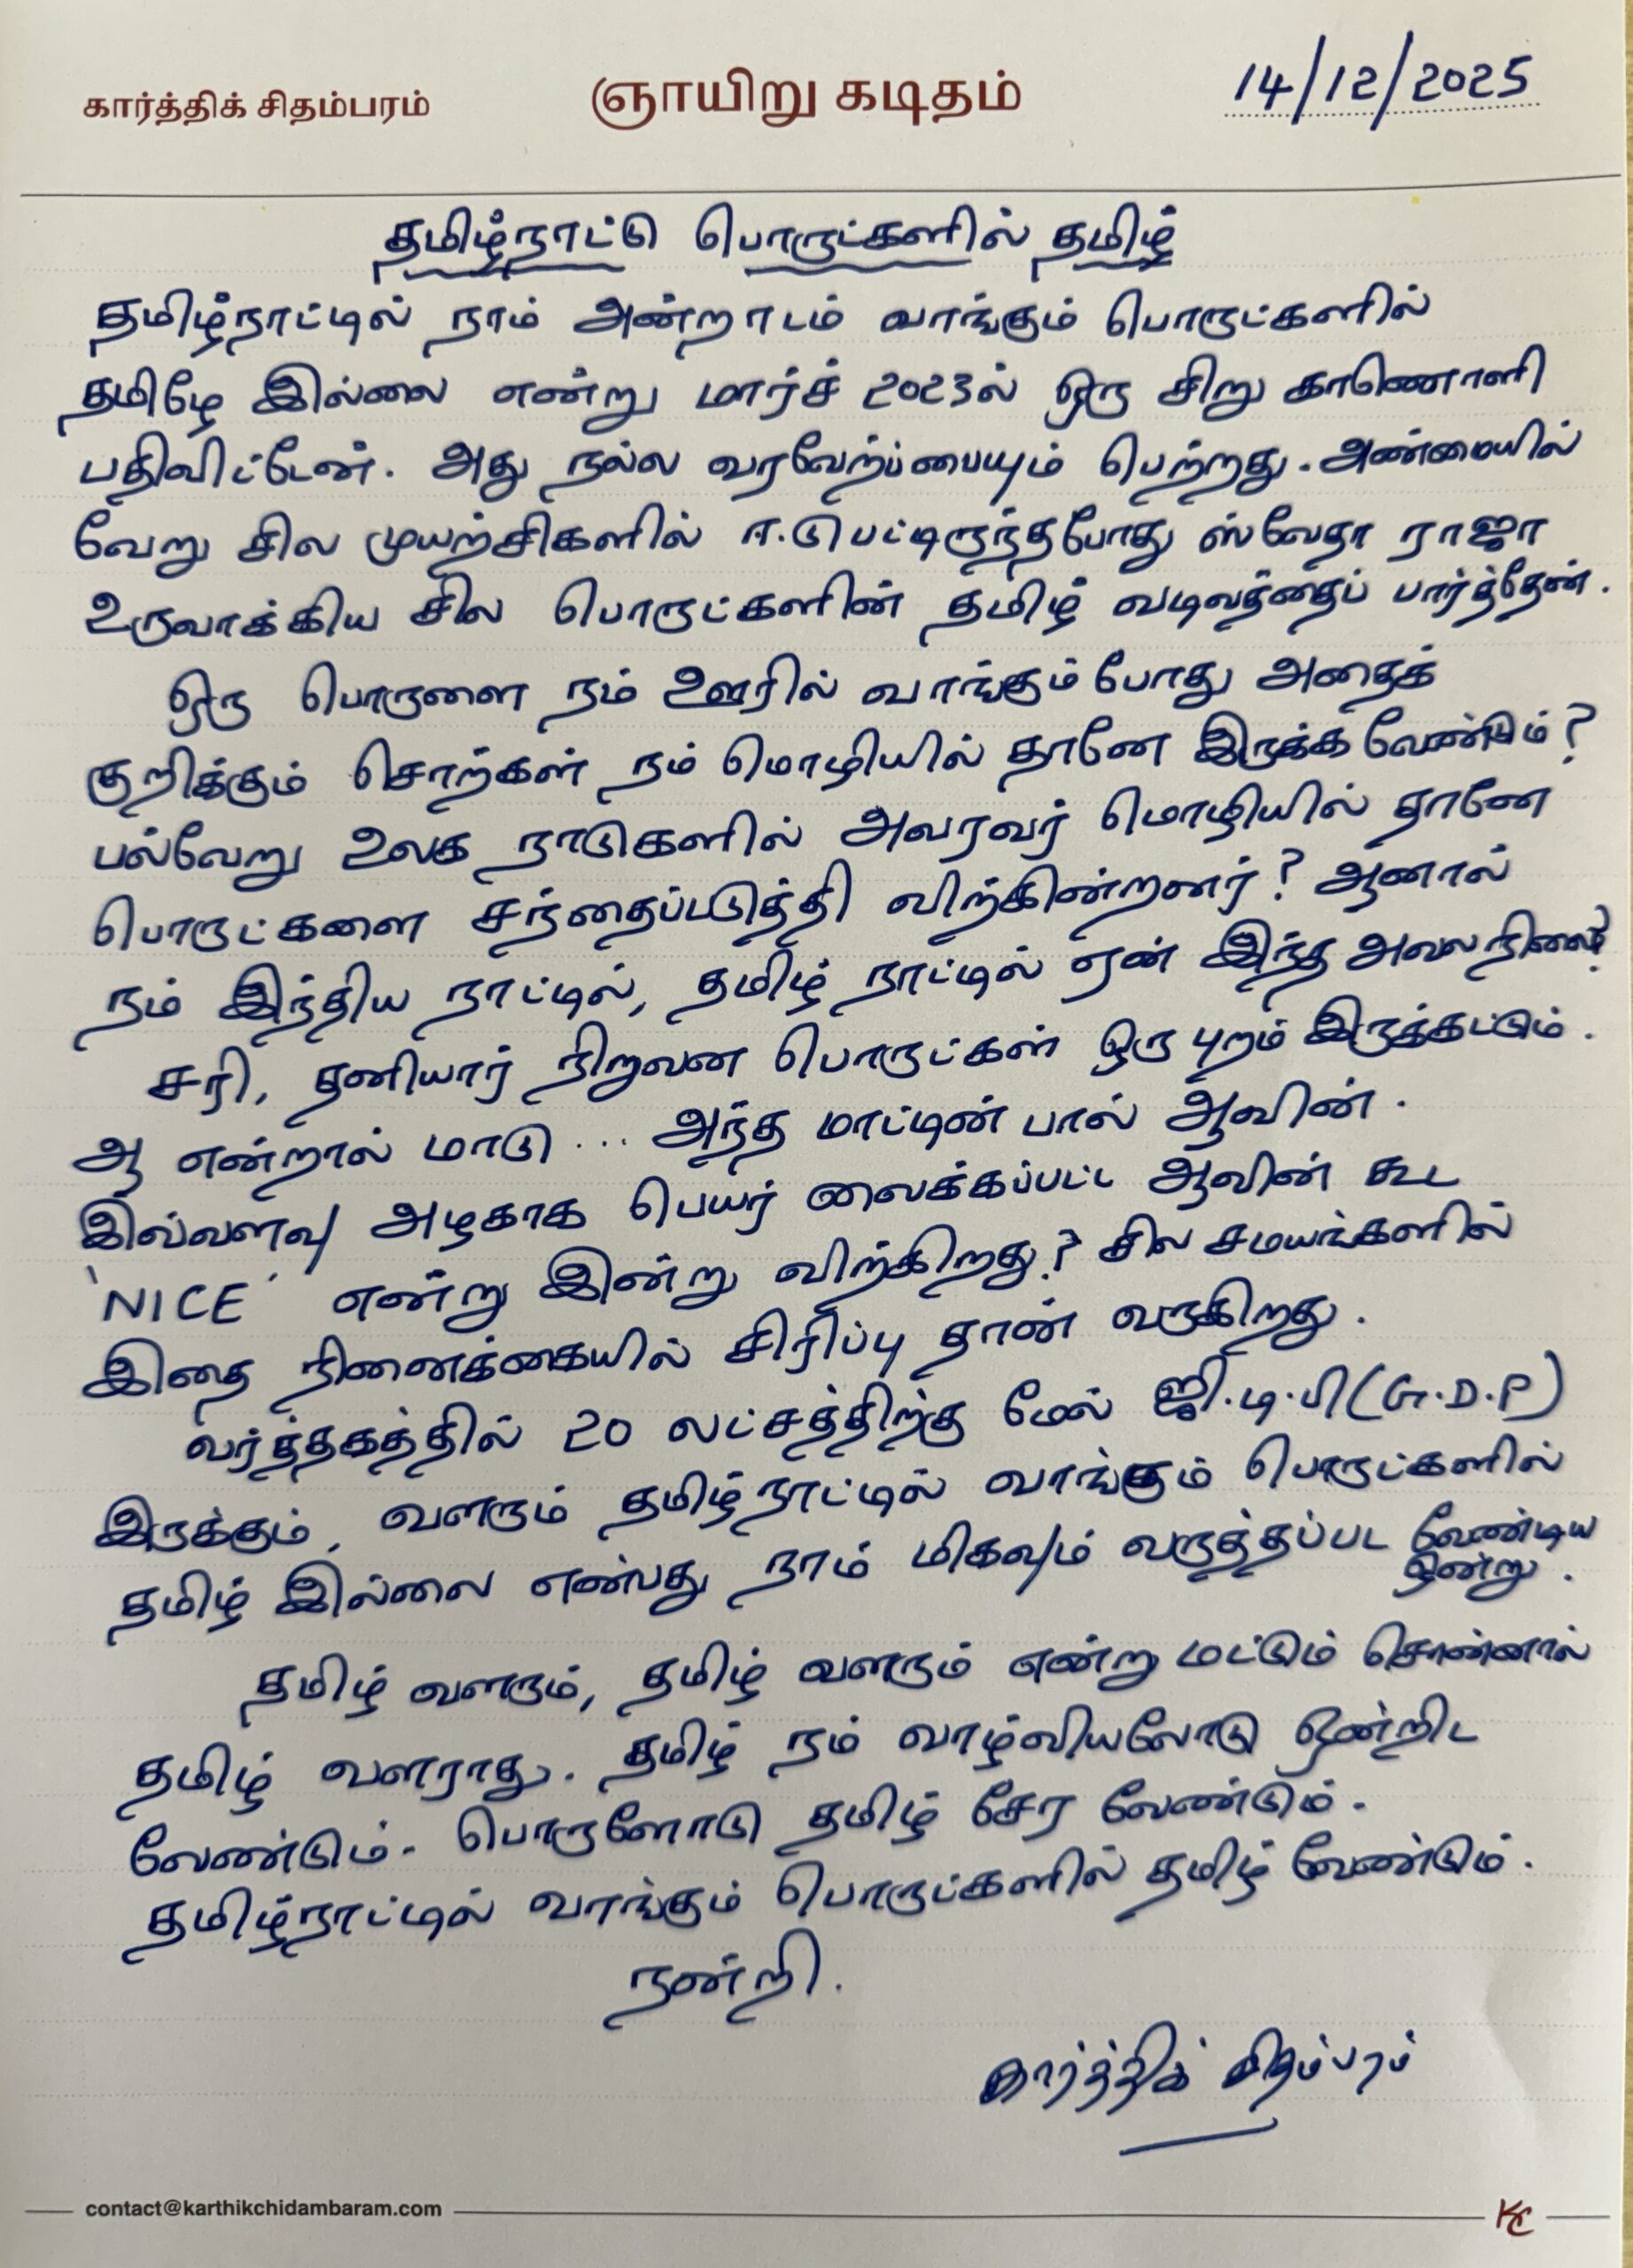 கார்த்திக் சிதம்பரம்
ஞாயிறு கடிதம்
14/12/2025
தமிழ்நாட்டு பொருட்களில் தமிழ்
தமிழ்நாட்டில் நாம் அன்றாடம் வாங்கும் பொருட்களில்
தமிழே இல்லை என்று மார்ச் 2023ல் ஒரு சிறு காணொளி
பதிவிட்டேன். அது நல்ல வரவேற்ப்பையும் பெற்றது. அண்மையில்
வேறு சில முயற்சிகளில் ஈடுபட்டிருந்தபோது ஸ்வேதா ராஜா
உருவாக்கிய சில பொருட்களின் தமிழ் வடிவத்தைப் பார்த்தேன்.
ஒரு பொருளை நம் ஊரில் வாங்கும்போது அதைக்
குறிக்கும் சொற்கள் நம் மொழியில் தானே இருக்க வேண்டும்?
பல்வேறு உலக நாடுகளில் அவரவர் மொழியில் தானே
பொருட்களை சந்தைப்படுத்தி விற்கின்றனர்? ஆனால்
நம் இந்திய நாட்டில், தமிழ் நாட்டில் ஏன் இந்த அவல நிலை?
சரி, தனியார் நிறுவன பொருட்கள் ஒரு புறம் இருக்கட்டும்.
ஆ என்றால் மாடு ... அந்த மாட்டின் பால் ஆவின்.
இவ்வளவு அழகாக பெயர் வைக்கப்பட்ட ஆவின் கூட
'NICE' என்று இன்று விற்கிறது? சில சமயங்களில்
இதை நினைக்கையில் சிரிப்பு தான் வருகிறது.
வர்த்தகத்தில் 20 லட்சத்திற்கு மேல் ஜி.டி.பி (G.D.P)
இருக்கும், வளரும் தமிழ்நாட்டில் வாங்கும் பொருட்களில்
தமிழ் இல்லை என்பது நாம் மிகவும் வருத்தப்பட வேண்டிய
ஒன்று.
தமிழ் வளரும், தமிழ் வளரும் என்று மட்டும் சொன்னால்
தமிழ் வளராது. தமிழ் நம் வாழ்வியலோடு ஒன்றிட
வேண்டும். பொருளோடு தமிழ் சேர வேண்டும்.
தமிழ்நாட்டில் வாங்கும் பொருட்களில் தமிழ் வேண்டும்.
நன்றி.
கார்த்திக் சிதம்பரம்
contact@karthikchidambaram.com
KC